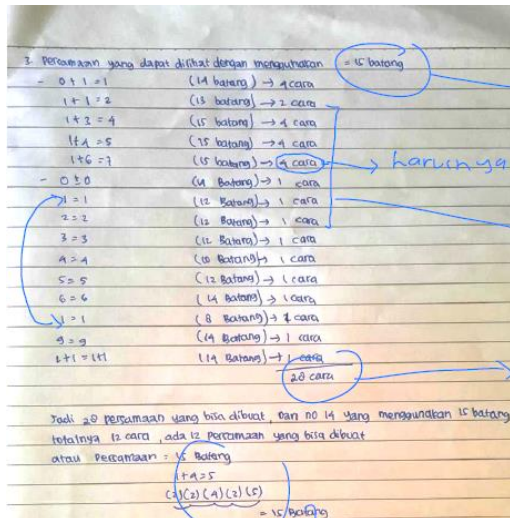 3. Persamaan yang dapat dilihat dengan menggunakan = 15 batang
- 0 + 1 = 1 (14 batang) → 4 cara
1 + 1 = 2 (13 batang) → 2 cara
1 + 3 = 4 (15 batang) → 4 cara
1+4 = 5 (15 batang) → 4 cara
1+6 = 7 (15 batang) → 4 cara → harusnya
- 0 ± 0 (14 Batang) → 1 cara
1 = 1 (12 Batang) → 1 cara
2 = 2 (12 Batang) → 1 cara
3 = 3 (12 Batang) → 1 cara
4 = 4 (10 Batang) → 1 cara
5 = 5 (12 Batang) → 1 cara
6 = 6 (14 Batang) → 1 cara
1 = 1 (8 Batang) → 1 cara
9 = 9 (14 Batang) → 1 cara
1+1 = 1+1 (14 Batang) → 1 cara
28 cara
Jadi 28 persamaan yang bisa dibuat, Dan no 14 yang menggunakan 15 batang
totalnya 12 cara, ada 12 persamaan yang bisa dibuat
atau Persamaan = 15 Batang
1+4=5
(2)(2)(4)(2)(5)
= 15 Batang